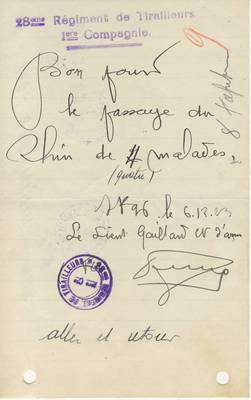 28ème Régiment de Tirailleurs
1ère Compagnie.
9
Bon pour
le passage du
Rhin de 4 malades.
(quatre)
le 6.12.23
Le Lieut Gaillard
RÉGIMENT DE TIRAILLEURS
aller et retour